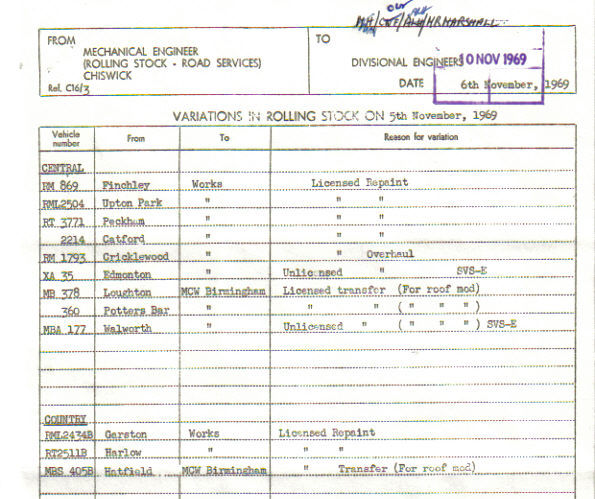 FROM
MECHANICAL ENGINEER
(ROLLING STOCK - ROAD SERVICES)
CHISWICK
Ref. C16/3
TO
DIVISIONAL ENGINEERS
10 NOV 1969
DATE 6th November, 1969
VARIATIONS IN ROLLING STOCK ON 5th November, 1969
Vehicle number From To Reason for variation
CENTRAL
RM 869 Finchley Works Licensed Repaint
RML2504 Upton Park " " "
RT 3771 Peckham " " "
2214 Catford " " "
RM 1793 Cricklewood " " Overhaul
XA 35 Edmonton " Unlicensed " SVS-E
MB 378 Loughton MCW Birmingham Licensed transfer (For roof mod)
360 Potters Bar " " " ( " " " )
MBA 177 Walworth " Unlicensed " ( " " " ) SVS-E
COUNTRY
RML2434B Garston Works Licensed Repaint
RT2511B Harlow " " "
MBS 405B Hatfield MCW Birmingham " Transfer (For roof mod)